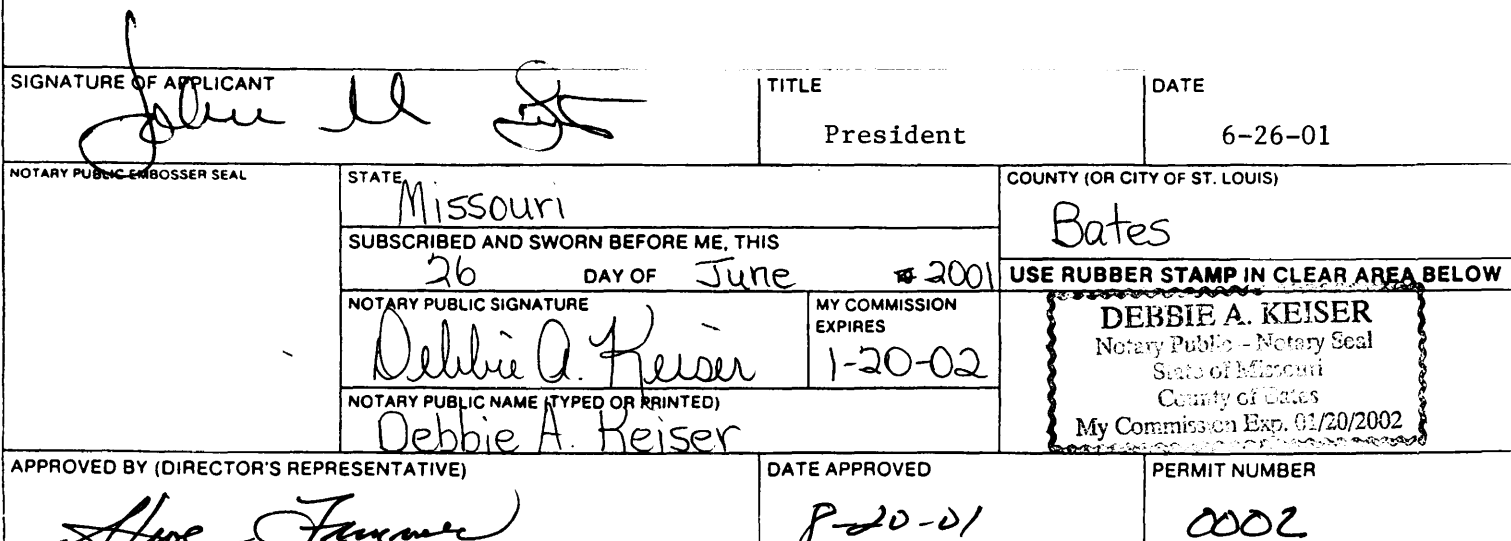 SIGNATURE OF APPLICANT
John
TITLE
President
DATE
6-26-01
NOTARY PUBLIC EMBOSSER SEAL
STATE
Missouri
COUNTY (OR CITY OF ST. LOUIS)
Bates
SUBSCRIBED AND SWORN BEFORE ME, THIS
26 DAY OF June 2001
USE RUBBER STAMP IN CLEAR AREA BELOW
NOTARY PUBLIC SIGNATURE
Debbie A. Keiser
MY COMMISSION
EXPIRES
1-20-02
DEBBIE A. KEISER
Notary Public - Notary Seal
State of Missouri
County of Bates
My Commission Exp. 01/20/2002
NOTARY PUBLIC NAME (TYPED OR PRINTED)
Debbie A. Keiser
APPROVED BY (DIRECTOR'S REPRESENTATIVE)
Steve
DATE APPROVED
8-20-01
PERMIT NUMBER
0002